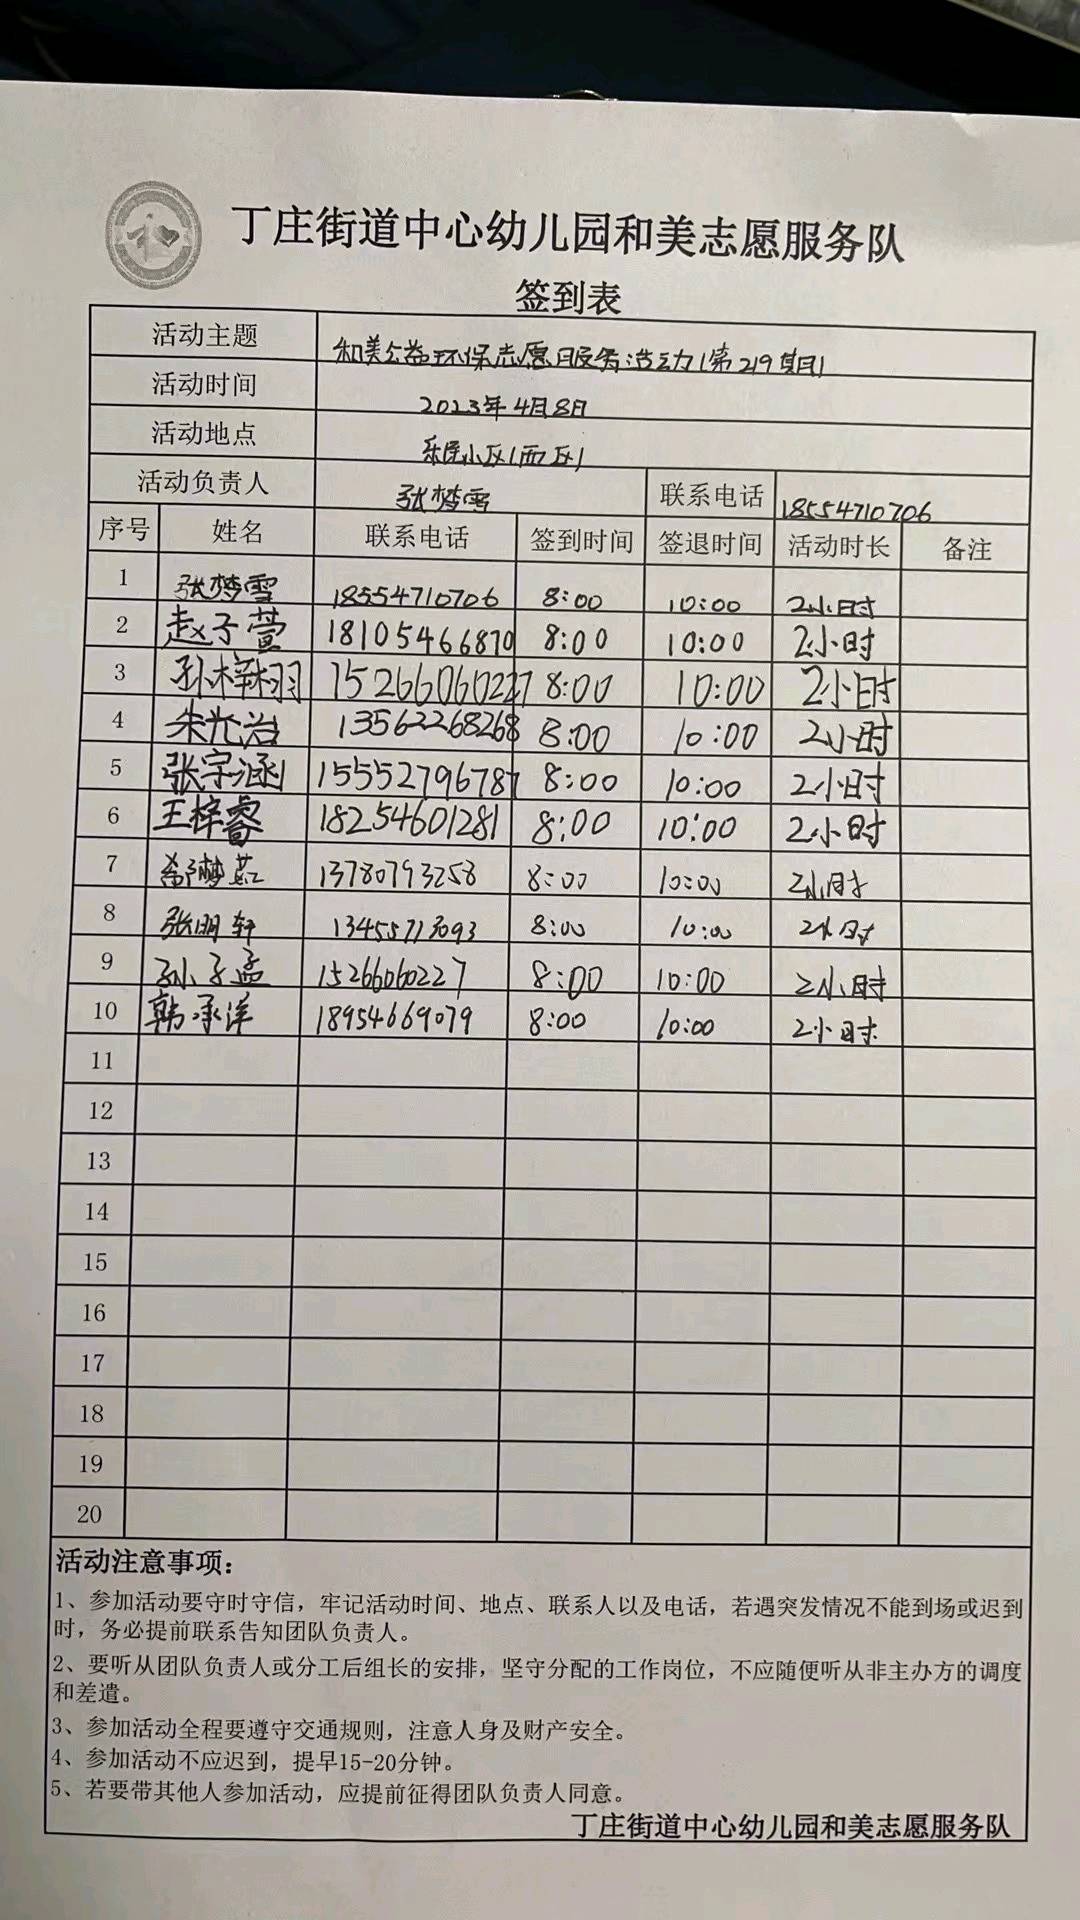 丁庄街道中心幼儿园和美志愿服务队
签到表
活动主题 和美公益环保志愿服务活动(第219期)
活动时间 2023年4月8日
活动地点 乐民小区(西区)
活动负责人 张梦雪 联系电话 18554710706
序号 姓名 联系电话 签到时间 签退时间 活动时长 备注
1 张梦雪 18554710706 8:00 10:00 2小时
2 赵子萱 18105466870 8:00 10:00 2小时
3 孙梓栩 15266060227 8:00 10:00 2小时
4 朱光治 13562268268 8:00 10:00 2小时
5 张宇涵 15552796787 8:00 10:00 2小时
6 王梓睿 18254601281 8:00 10:00 2小时
7 梦茹 13780793258 8:00 10:00 2小时
8 张明轩 13455713093 8:00 10:00 2小时
9 孙子孟 15266060227 8:00 10:00 2小时
10 韩承洋 18954669079 8:00 10:00 2小时
11
12
13
14
15
16
17
18
19
20
活动注意事项：
1、参加活动要守时守信，牢记活动时间、地点、联系人以及电话，若遇突发情况不能到场或迟到
时，务必提前联系告知团队负责人。
2、要听从团队负责人或分工后组长的安排，坚守分配的工作岗位，不应随便听从非主办方的调度
和差遣。
3、参加活动全程要遵守交通规则，注意人身及财产安全。
4、参加活动不应迟到，提早15-20分钟。
5、若要带其他人参加活动，应提前征得团队负责人同意。
丁庄街道中心幼儿园和美志愿服务队